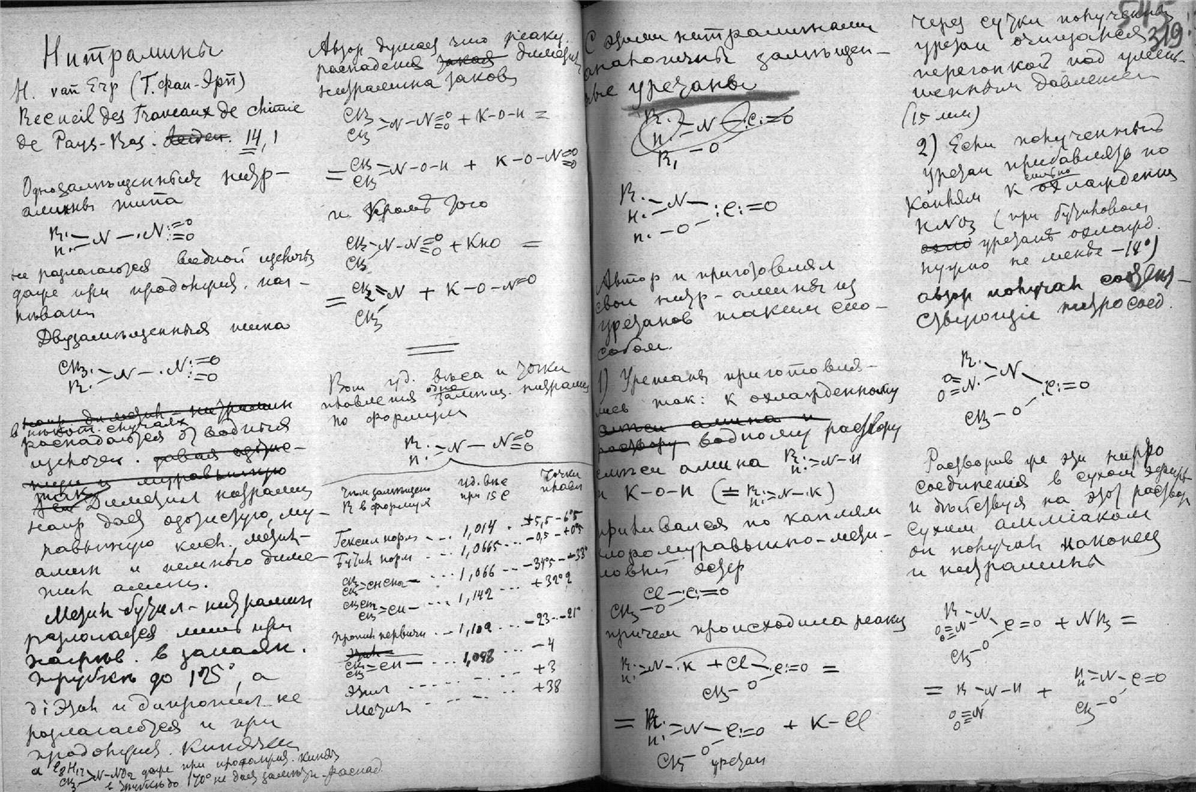 Нитрамины
H. van Erp (Т. фан-Эрп)
Recueil des Travaux de chimie
de Pays-Bas. Leiden. 14, 1
Однозамѣщенные нитр-
амины типа
R
H > N — N =O =O
не разлагаются водной щелочью
даже при продолжит. наг-
рѣвании
Двузамѣщенные типа
CH3
R > N — N =O =O
распадаются отъ водныхъ
щелочей.
Диметил нитрамин
напр. даетъ азотистую, му-
равьиную кисл. метил-
амин и немного диме-
тил амина.
Метил-бутил-нитрамин
разлагается лишь при
нагрѣв. в запаян.
трубкѣ до 125°, а
диэтил и дипропил не
разлагаются и при
продолжит. кипячен.
а C6H13
CH3 > N-NO2 даже при продолжит. кипяч.
в трубкѣ до 170° не дает
Автор думает что реакц.
распадения такая диметил
нитрамина такова
CH3
CH3 > N-N =O =O + K-O-H =
= CH3
CH3 > N-O-H + K-O-N =O =O
и кромѣ того
CH3
CH3 > N-N =O =O + KHO =
= CH2=N + K-O-N=O
CH3
Вот уд. вѣса и точки
плавления одно замѣщ. нитрамин
по формулѣ
R
H > N — N =O =O
Чѣм замѣщено
R в формулѣ
уд. вѣс
при 15 C
Точки
плавл.
Гексил норм ... 1,014 . +5,5 - 6°5
Бутил норм ... 1,0665 .. -0,5 - +0°5
1,066
1,142 ... +32°2
Пропил первичн - 1,102 ... -23 - -21°
CH3
CH3 > CH - ... 1,098 ... -4
Этил ... +3
Метил ... +38
С этими нитраминами
аналогичны замѣщен-
ные уретаны
R
H > N — C=O
R1 — O
R
H > N — C=O
— O
Автор и приготовлял
свои нитр-амины из
уретанов таким спо-
собом.
1) Уретаны приготовля-
лись так: к охлажденному
водному раствору
смѣси амина R
H > N-H
и K-O-H (= R
H > N-K)
приливался по каплям
хлоромуравьино-мети-
ловый эфир
Cl — C=O
CH3 — O
причем происходила реакц
R
H > N-K + Cl — C=O =
CH3 — O
= R
H > N — C=O + K-Cl
CH3 — O уретан
545
319
через сутки полученный
уретан очищался
перегонкой под умень-
шенным давлением
(15 мм)
2) Если полученный
уретан прибавлять по
каплям к сильно охлажденной
HNO3 (при бутиловом
уретанѣ охлажд.
нужно не менѣе -18°)
автор получал соотвѣт-
ствующие нитросоед.
R
O=N=O > N — C=O
CH3 — O
Растворив же эти нитро
соединения в сухом эфирѣ
и дѣйствуя на этот раствор
сухим аммиаком
он получал наконец
и нитрамины
R
O=N=O > N — C=O + NH3 =
CH3 — O
= R
O=N=O > N-H + H
H > N — C=O
CH3 — O